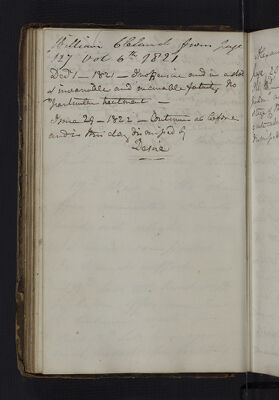 William Cleland from page
127 Vol 6th 1821
Decr 1 – 1821 – Inoffensive and in a state
of incurable and incurable fatuity No
particular treatment –
June 29 – 1822 – Continues as before
and is this day dismissed by
Desire